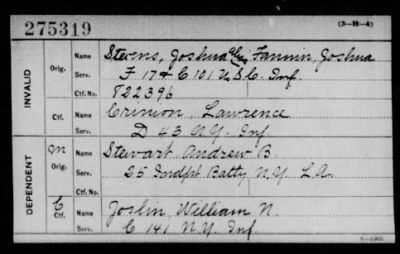 275319
(3-H-4)
INVALID
Orig. Name Stevens, Joshua alias Fannin, Joshua
Serv. F 17 & C 101 U.S.C. Inf.
Ctf. No. 822396
Ctf. Name Crimion, Lawrence
Serv. D 43 N.Y. Inf.
DEPENDENT
M Orig. Name Stewart, Andrew B.
Serv. 25 Indpt Batty N.Y. L.A.
Ctf. No.
C Ctf. Name Joslin, William N.
Serv. C 141 N.Y. Inf.